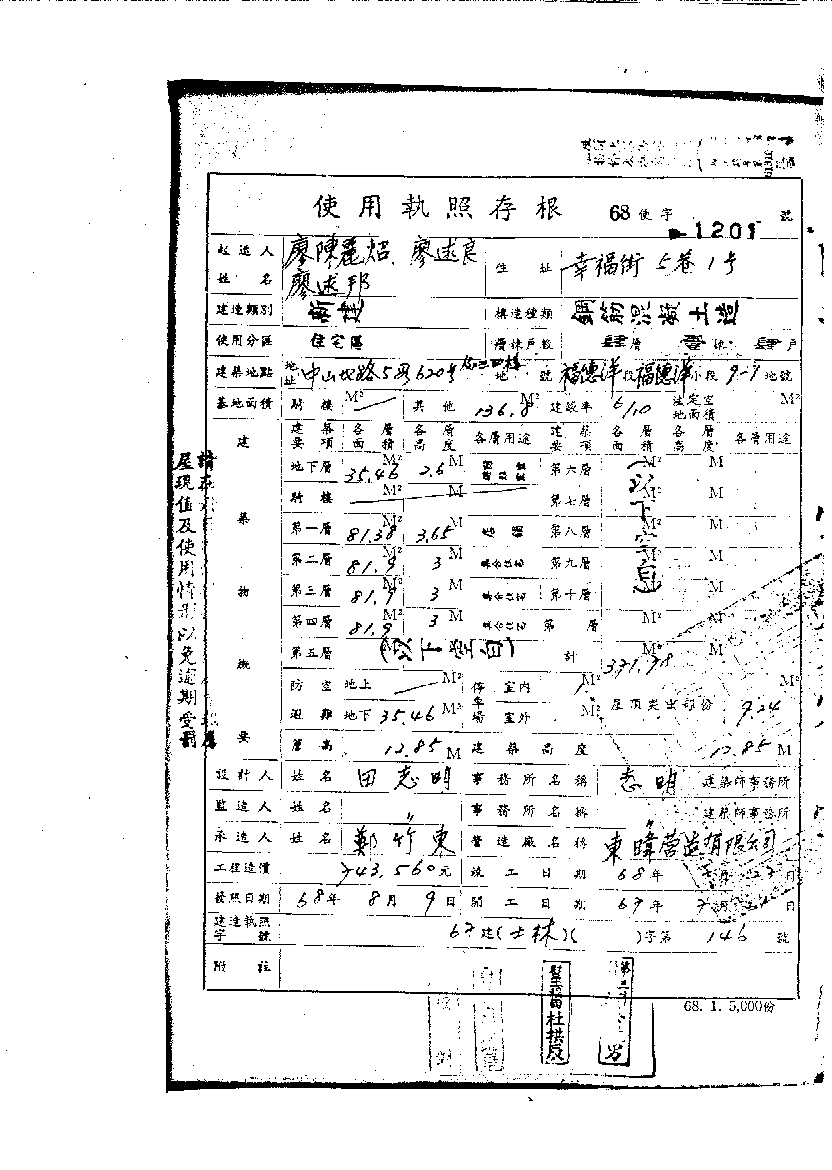 使用執照存根 68使字 1201 號
起造人姓名 廖陳麗 廖述良 廖述邦 住址 幸福街5巷1号
建造類別 新建 構造種類 鋼筋混凝土造
使用分區 住宅區 層棟戶數 肆層 壹棟 肆戶
建築地點 地址 中山北路5段620号 地號 福德洋段福德洋小段9-7地號
基地面積 騎樓 M² 其他 136.8 建蔽率 6/10 法定空地面積 M²
建築物概要 建築要項 各層面積 各層高度 各層用途 建築要項 各層面積 各層高度 各層用途
地下層 35.46 M² 2.6 M 第六層 M² M
騎樓 M² M 第七層 M² M
第一層 81.38 M² 3.65 M 店舖 第八層 M² M
第二層 81.9 M² 3 M 第九層 M² M
第三層 81.9 M² 3 M 第十層 M² M
第四層 81.9 M² 3 M 第 層 M² M
第五層 (以下空白) 計 M²
(以下空白)
防空避難 地上 M² 停車場 室內 M² 屋頂突出部份 9.24 M²
地下 35.46 M² 室外 M²
簷高 12.85 M 建築高度 12.85 M
設計人 姓名 田志明 事務所名稱 志明 建築師事務所
監造人 姓名 〃 事務所名稱 〃 建築師事務所
承造人 姓名 鄭竹東 營造廠名稱 東暐營造有限公司
工程造價 743,560元 竣工日期 68年 月 27日
發照日期 68年 8月 9日 開工日期 67年 7月 日
建造執照字號 67建(士林)( )字第 146 號
附註
68. 1. 5,000份
屋現值及使用情形以免逾期受罰